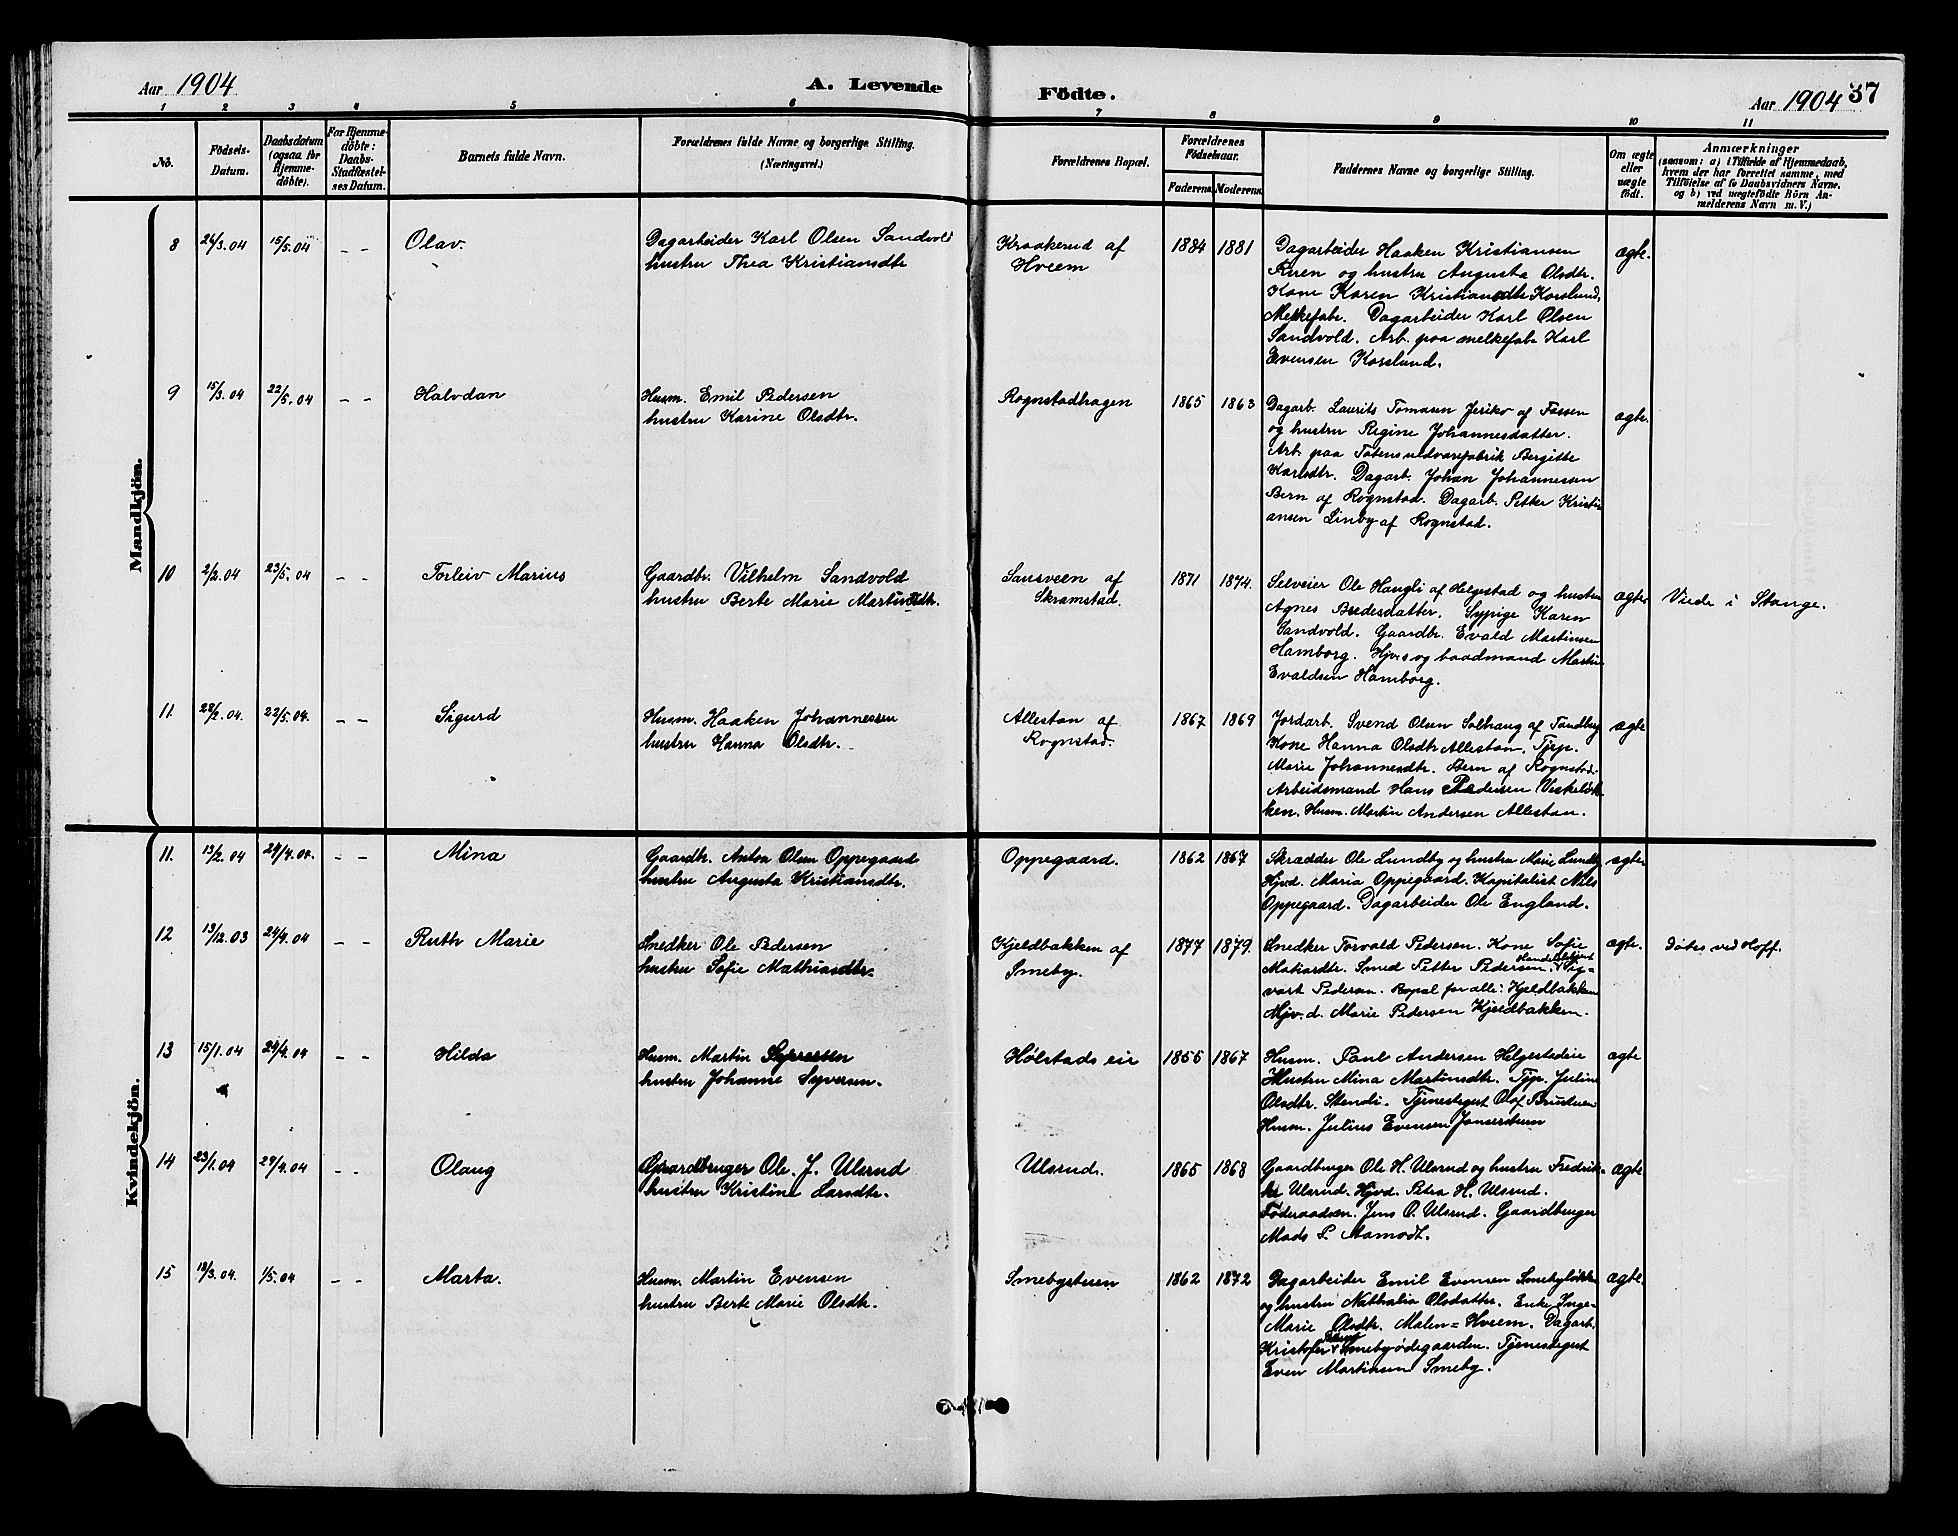 Aar 1904
A. Levende
Födte.
Aar 1904
37
1 2 3 4 5 6 7 8 9 10 11
No.
Födsels-
Datum.
Daabsdatum
(ogsaa for
Hjemme-
döbte).
For Hjemme-
döbte:
Daabs-
Stadfæstel-
ses Datum.
Barnets fulde Navn.
Forældrenes fulde Navne og borgerlige Stilling.
(Næringsvei.)
Forældrenes Bopæl.
Forældrenes
Födselsaar.
Faderens. Moderens.
Faddernes Navne og borgerlige Stilling.
Om ægte
eller
uægte
födt.
Anmærkninger
(saasom: a) i Tilfælde af Hjemmedaab,
hvem der har forrettet samme, med
Tilföielse af to Daabsvidners Navne,
og b) ved uægtefödte Börn An-
melderens Navn m. V.)
Mandkjön.
8 24/3.04 15/5.04 - - Olav.
Dagarbeider Karl Olsen Sandvold
hustru Thea Kristiansdtr
Kraakerud af
Hveem
1884 1881
Dagarbeider Haaken Kristiansen
og hustru Augusta Olsdtr.
Kone Karen Kristiansdtr Korslund,
Melkefabr. Dagarbeider Karl Olsen
Sandvold. Arb. paa melkefab. Karl
Evensen Korslund.
ægte.
9 15/3.04 22/5.04 - - Halvdan
Husm. Emil Pedersen
hustru Karine Olsdtr.
Rognstadhagen
1865 1863
Dagarb. Laurits Tomasen Jeriko af Fossen
og hustru Regine Johannesdatter.
Arb. paa Totens uldvarefabrik Bergitte
Karlsdtr. Dagarb. Johan Johannessen
Bern af Rognstad. Dagarb. Petter Kristi-
ansen Linby af Rognstad.
ægte.
10 2/2.04 23/5.04 - - Torleiv Marius
Gaardbr. Vilhelm Sandvold
hustru Berte Marie Martinsdtr.
Sansveen af
Skramstad.
1871 1874.
Selveier Ole Haugli af Helgestad og hustru
Agnes Bredesdatter. Sypige Karen
Sandvold. Gaardbr. Evald Martinsen
Hamborg. Hjv.s og baadmand Martin
Evaldsen Hamborg.
ægte
Viede i Stange.
11. 28/2.04. 22/5.04. - - Sigurd
Husm. Haaken Johannessen
hustru Hanna Olsdtr.
Allestan af
Rognstad.
1867 1869
Jordarb. Svend Olsen Solhaug af Sandberg
Kone Hanna Olsdtr Allestan. Tjp.
Marie Johannesdtr. Bern af Rognstad.
Arbeidsmand Hans Pedersen Veskeløk-
ken. Husm. Martin Andersen Allestan.
ægte
Kvindekjön.
11. 13/2.04 24/4.04. - - Mina
Gaardb. Anton Olsen Oppegaard
hustru Augusta Kristiansdtr.
Oppegaard.
1862 1867
Skrædder Ole Lundby og hustru Marie Lundby
Hjvd. Maria Oppegaard. Kapitalist Nils
Oppegaard. Dagarbeider Ole England.
ægte
12 13/12.03 24/4.04 - - Ruth Marie
Snedker Ole Pedersen
hustru Sofie Mathiasdtr.
Kjeldbakken af
Smeby.
1877 1879.
Snedker Torvald Pedersen. Kone Sofie
Matiasdtr. Smed Petter Pedersen. Handelsbetjent Sig-
vart Pedersen. Bopæl for alle: Kjeldbakken
Hjv.d. Marie Pedersen Kjeldbakken.
ægte.
Døbes ved Hoff.
13 15/1.04 24/4.04 - - Hilda
Husm. Martin Syversen
hustru Johanne Syversen.
Hølstads eie
1856 1867
Husm. Paul Andersen Helgestadeie
Hustru Mina Martinsdtr. Tjp. Juline
Olsdtr. Stendi. Tjenestegut Olaf
Husm. Julius Evensen
ægte
14 23/1.04 24/4.04 - - Olaug
Gaardbruger Ole. J. Ulsrud
hustru Kristine Larsdtr.
Ulsrud.
1865 1868
Gaardbruger Ole H. Ulsrud og hustru Fredrik-
ke Ulsrud. Hjvd. Petra H. Ulsrud.
Føderaadsm. Jens O. Ulsrud. Gaardbruger
Mads P. Aamodt.
ægte
15 18/3.04. 1/5.04 - - Marta.
Husm. Martin Evensen
hustru Berte Marie Olsdtr.
Smebysteen
1862 1872
Dagarbeider Emil Evensen Smebyløkken
og hustru Nathalia Olsdatter. Enke Inge-
Marie Olsdtr. Malen=Hveem. Dagarb.
Kristofer Smebyødegaarden. Tjenestegut
Even Martinsen Smeby.
ægte